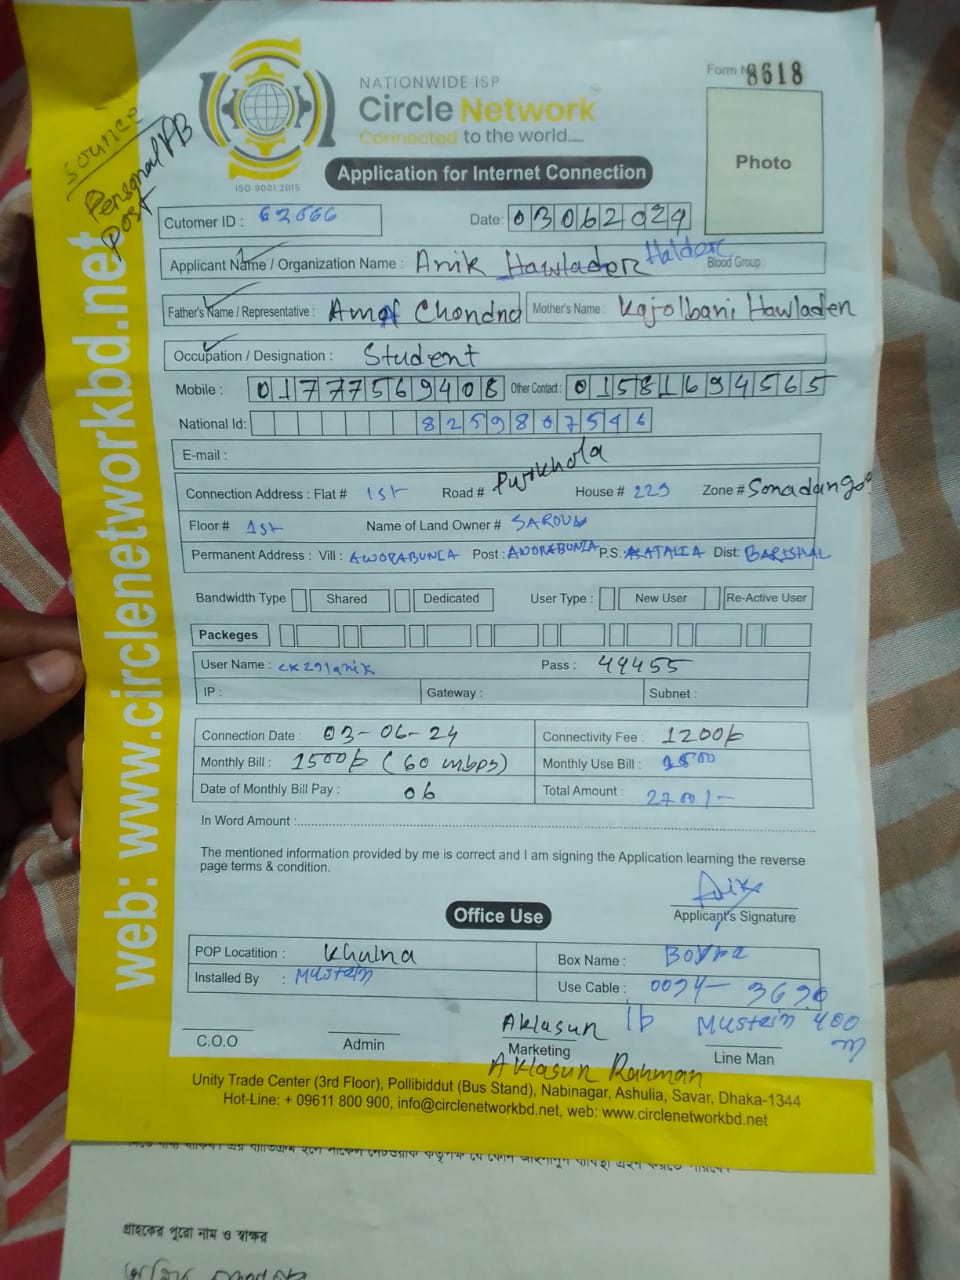 NATIONWIDE ISP
Circle Network
Connected to the world.....
ISO 9001:2015
Form N 8618
Photo
Source
Personal FB
Post
web: www.circlenetworkbd.net
Application for Internet Connection
Cutomer ID : 62666
Date: 03062024
Applicant Name / Organization Name : Anik Hawlader Halder Blood Group
Father's Name / Representative : Chondno Mother's Name : Kajolbani Hawlader
Occupation / Designation : Student
Mobile : 01777569408 Other Contact : 01581694565
National Id: 8259807546
E-mail :
Connection Address : Flat # 1st Road # Purkhola House # 229 Zone # Sonadanga
Floor # 1st Name of Land Owner #
Permanent Address : Vill : Post : P.S. : Dist: BARISHAL
Bandwidth Type Shared Dedicated User Type : New User Re-Active User
Packeges
User Name : Pass : 49455
IP : Gateway : Subnet :
Connection Date : 03-06-24 Connectivity Fee : 1200/-
Monthly Bill : 1500/- (60 mbps) Monthly Use Bill : 1500
Date of Monthly Bill Pay : 06 Total Amount : 2700/-
In Word Amount :
The mentioned information provided by me is correct and I am signing the Application learning the reverse
page terms & condition.
Anik
Applicant's Signature
Office Use
POP Locatition : Khulna Box Name : Boyra
Installed By : Mustein Use Cable :
Aklasun Mustein 400
m
C.O.O Admin Marketing Line Man
Aklasun Rahman
Unity Trade Center (3rd Floor), Pollibiddut (Bus Stand), Nabinagar, Ashulia, Savar, Dhaka-1344
Hot-Line: + 09611 800 900, info@circlenetworkbd.net, web: www.circlenetworkbd.net
গ্রাহকের পুরো নাম ও স্বাক্ষর